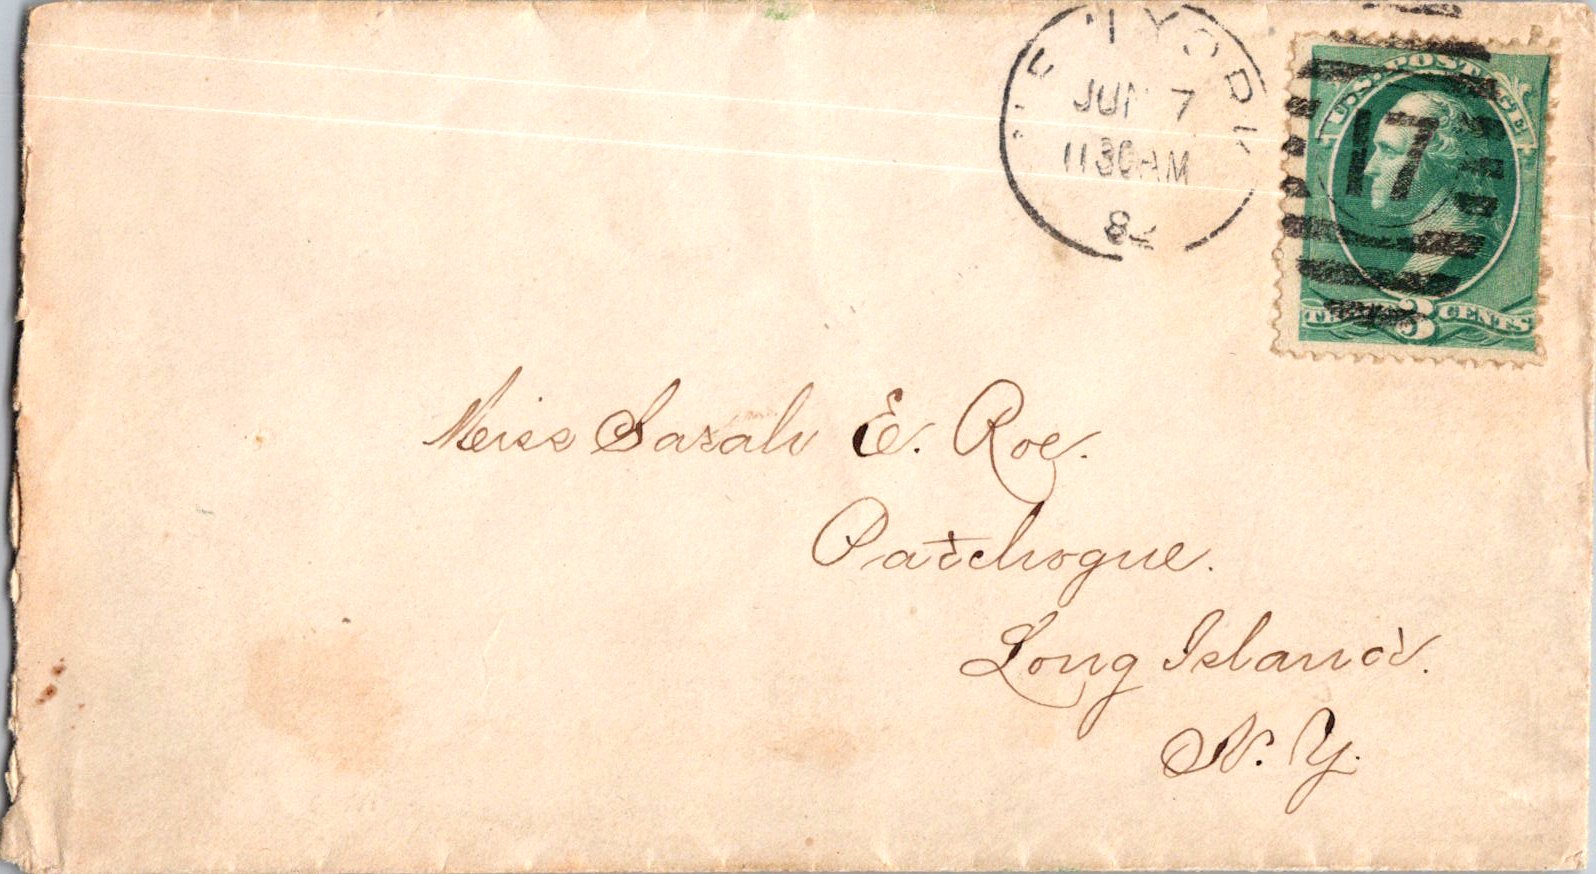 NEW YORK
JUN 7
11 30 AM
82
U.S. POSTAGE
17
THREE 3 CENTS
Miss Sarah E. Roe.
Patchogue.
Long Island.
N. Y.